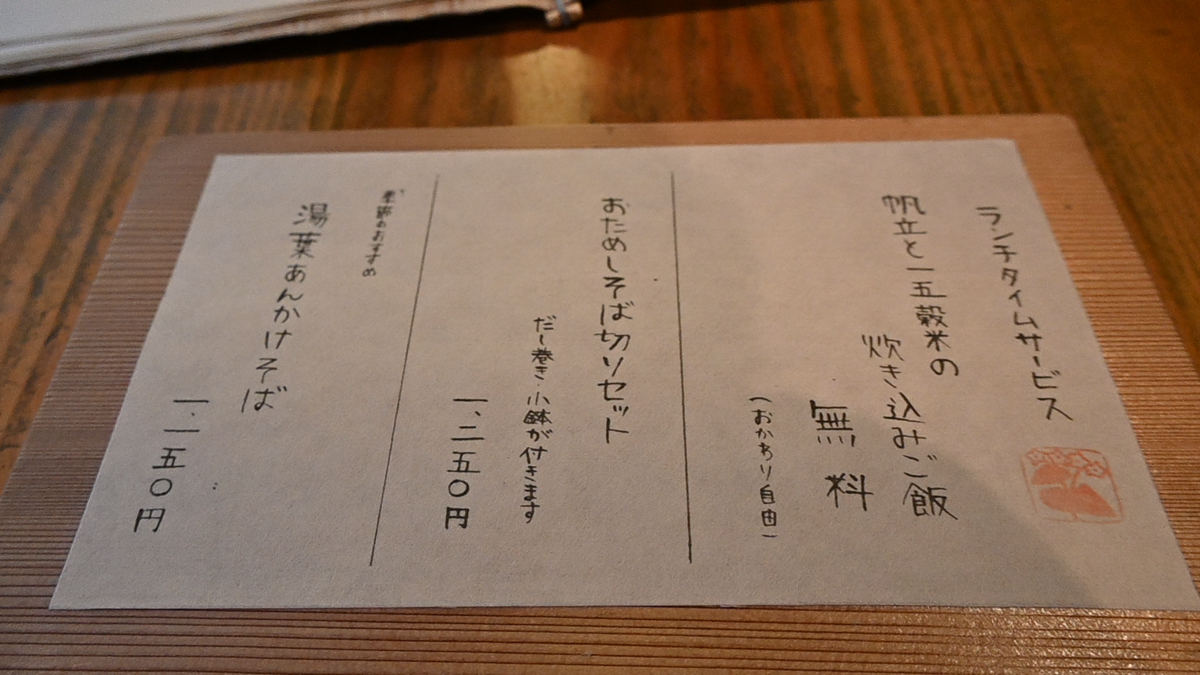 ランチタイムサービス
帆立と一五穀米の
炊き込みご飯
無料
(おかわり自由)
おためしそば切りセット
だし巻き・小鉢が付きます
一、二五〇円
季節のおすすめ
湯葉あんかけそば
一、一五〇円